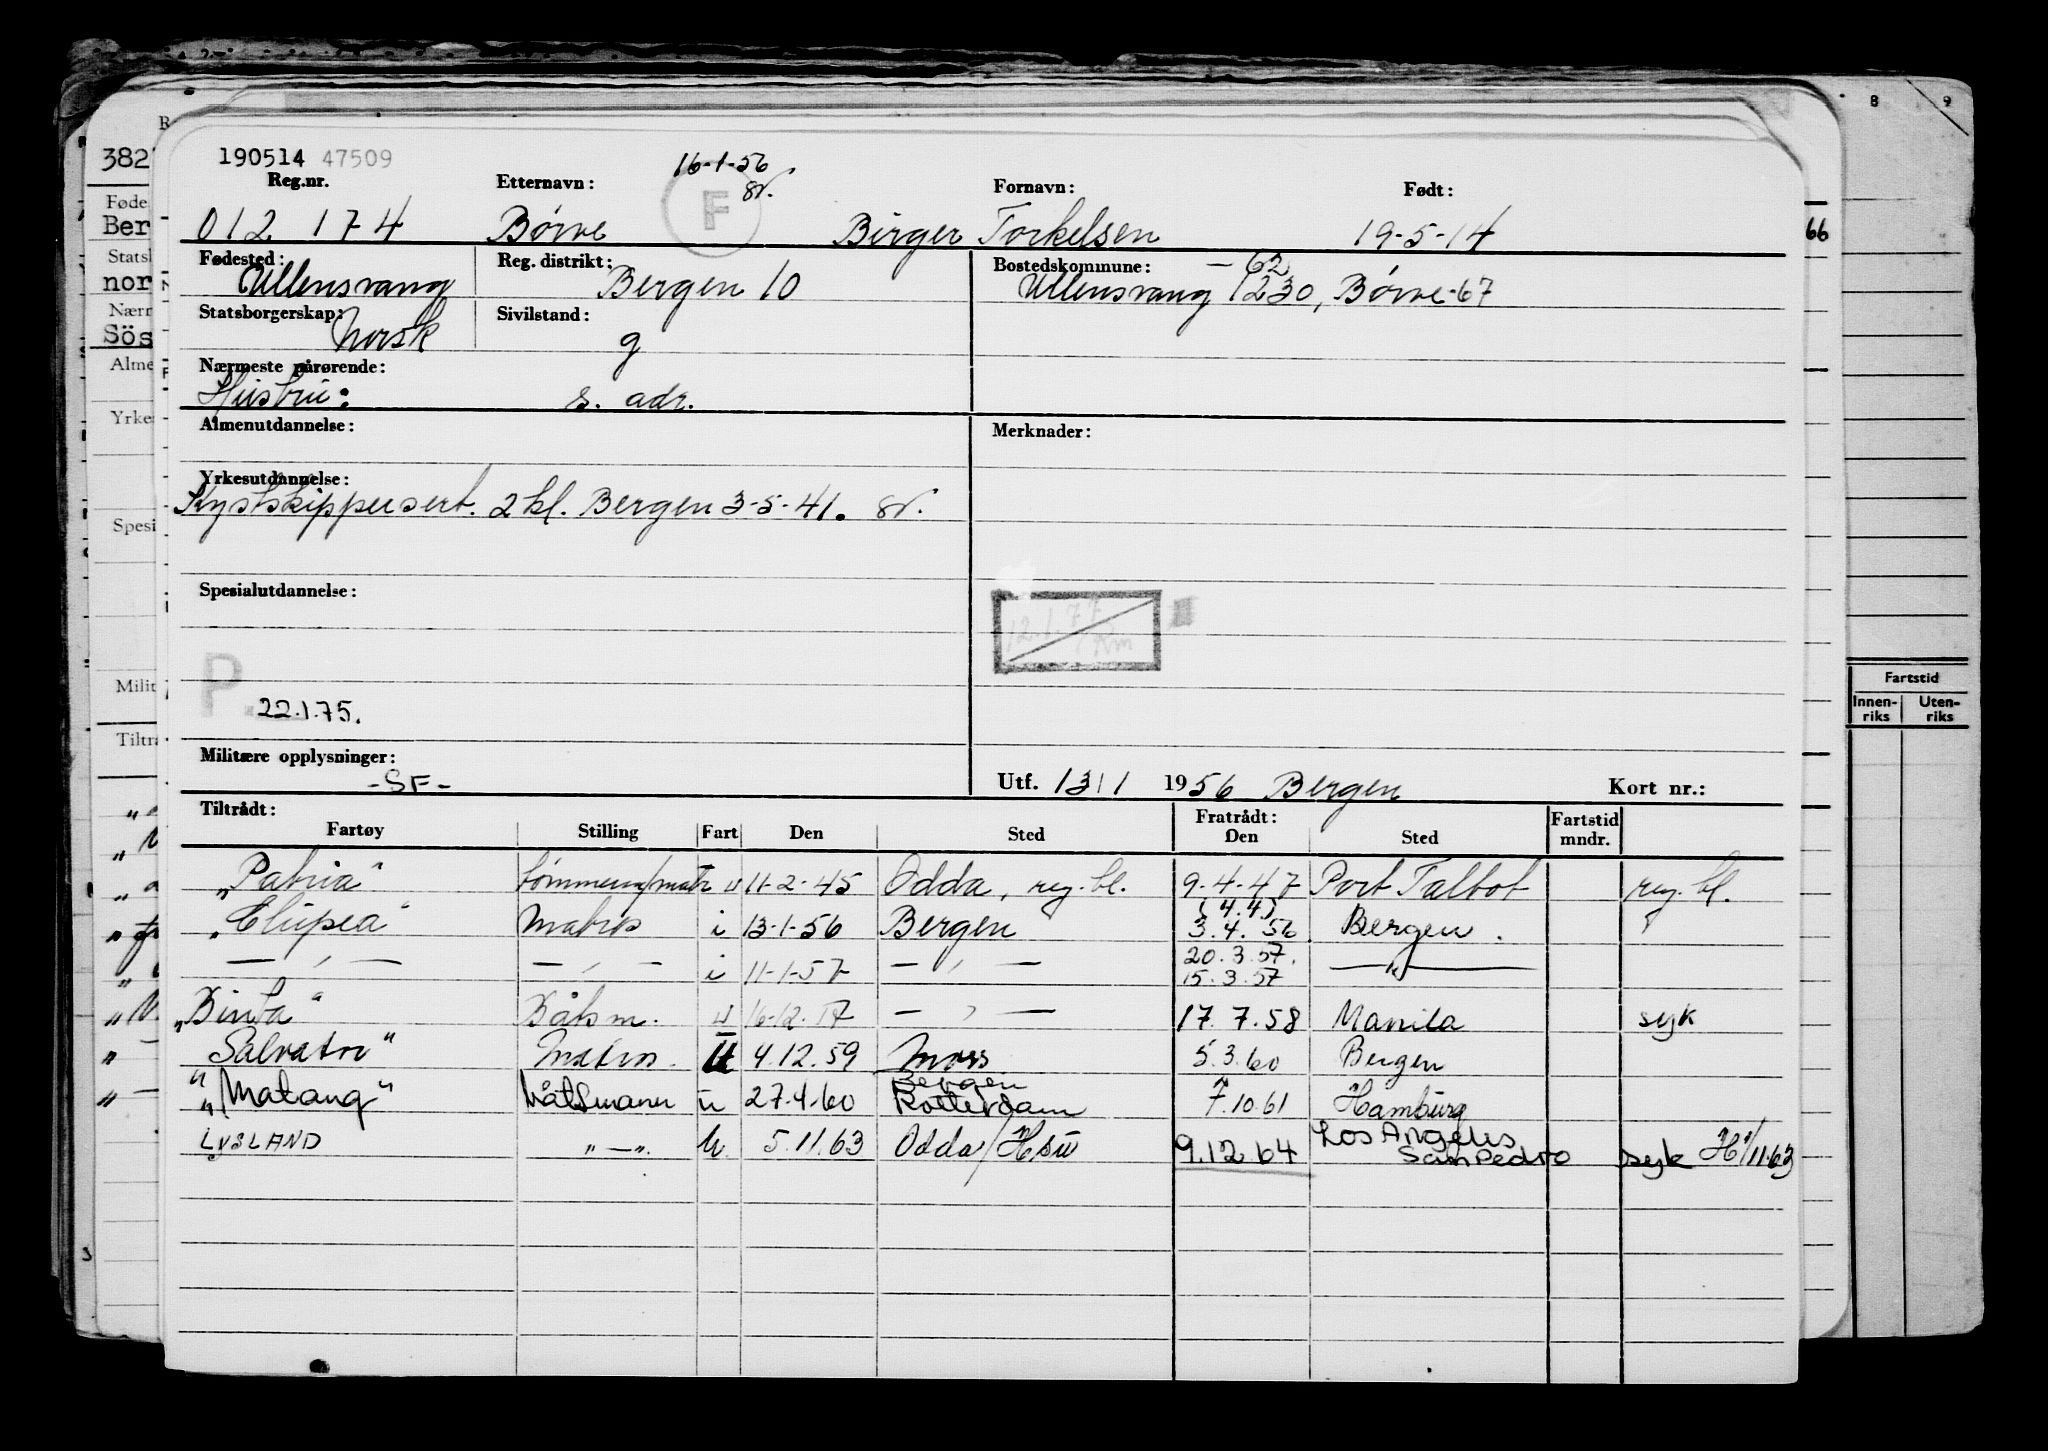 8 9
R
382
190514 47509
16-1-56
Reg.nr. Etternavn: F Fornavn: Født:
012 174 Börve Birger Torkelsen 19-5-14
66
Føde
Ber
Fødested: Reg. distrikt: Bostedskommune: -62
Ullensvang Bergen 10 Ullensvang 1230, Börve-67
Stats
nor
Statsborgerskap: Sivilstand:
Norsk g
Nærm
Sös
Nærmeste pårørende:
Hustru: s. adr.
Alme
Almenutdannelse: Merknader:
Yrke
Yrkesutdannelse:
Kystskippersert. 2 kl. Bergen 3-5-41.
Spesi
Spesialutdannelse:
12.1.77
P.
22.1.75.
Milit
Fartstid
Innen- Uten-
riks riks
Tiltr
Militære opplysninger:
-SF-
Utf. 13/1 1956 Bergen Kort nr.:
Tiltrådt: Fratrådt: Fartstid
Fartøy Stilling Fart Den Sted Den Sted mndr.
"Patria" u 11-2-45 Odda, reg. bl. 9-4-47 Port Talbot reg. bl.
Matros i 13-1-56 Bergen 3.4.56 Bergen.
— " — — " — i 11-1-57 — " — 20.3.57. — " —
15.3.57
Båtsm. u 16-12-57 — " — 17.7.58 Manila syk
"Salvator" Matros. U 4.12.59 Moss 5.3.60 Bergen
Bergen
"Matang" Båtsmann u 27.4.60 Rotterdam 7.10.61 Hamburg
LYSLAND " — ". u. 5.11.63 Odda/Hsu 9.12.64 Los Angeles
San Pedro syk H/11.63
3